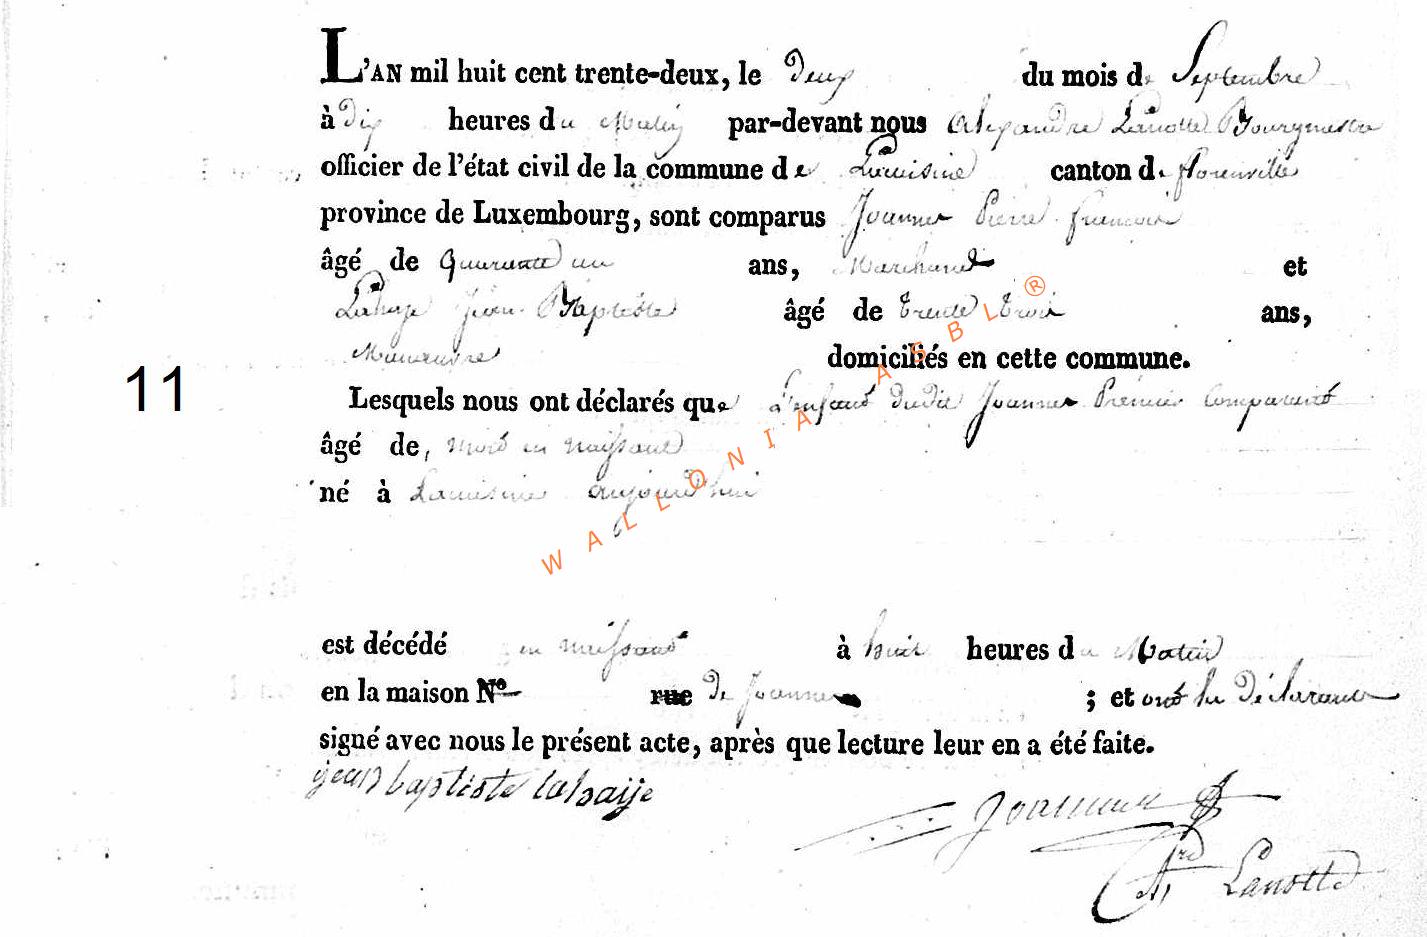 L'AN mil huit cent trente-deux, le deux du mois de Septembre
à dix heures du Matin par-devant nous Alexandre Lanotte Bourgmestre
officier de l'état civil de la commune de Lacuisine canton de florenville
province de Luxembourg, sont comparus Joannes Pierre francois
âgé de Quarante un ans, Marchand et
Lahaye Jean Baptiste âgé de trente trois ans,
Manoeuvre domiciliés en cette commune.
11
Lesquels nous ont déclarés que L'enfant dudit Joannes Premier Comparant
âgé de, mort en naissant
né à Lacuisine aujourd'hui
est décédé en naissant à huit heures du Matin
en la maison N° rue de Joannes ; et ont les déclarants
signé avec nous le présent acte, après que lecture leur en a été faite.
jean baptiste lahaije
Joannes
Ard Lanotte
WALLONIA ASBL®